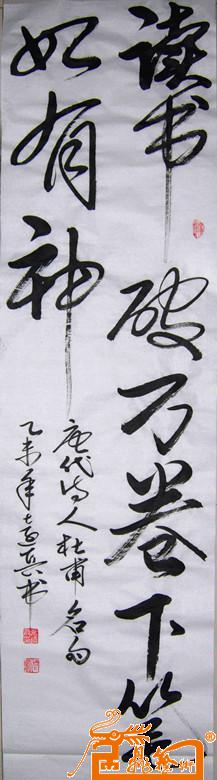 读书破万卷下笔
如有神
唐代诗人杜甫名句
乙未年志兵书